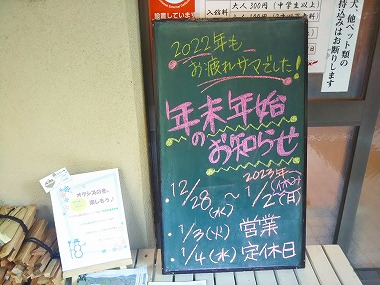 2022年も
お疲れサマでした!
年末年始
のお知らせ
12/28(水)〜2023年1/2(月)(休み)
1/3(火) 営業
1/4(水) 定休日
設置しています
入館料
大人300円(中学生以上)
犬、他ペット類の
持込みはお断りします
楽しもう♪